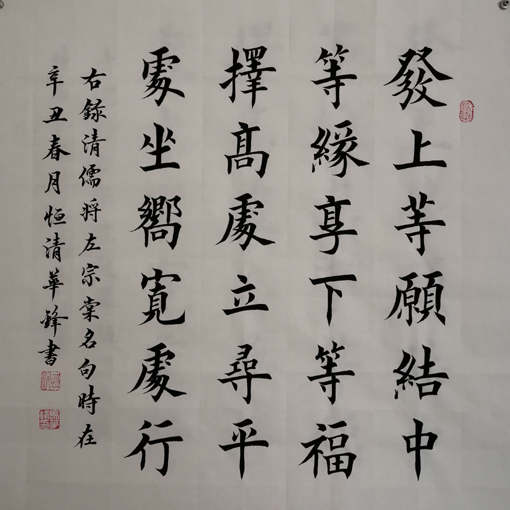 發上等願結中
等緣享下等福
擇髙處立尋平
處坐嚮寬處行
右錄清儒将左宗棠名句時在
辛丑春月恒清華鋒書